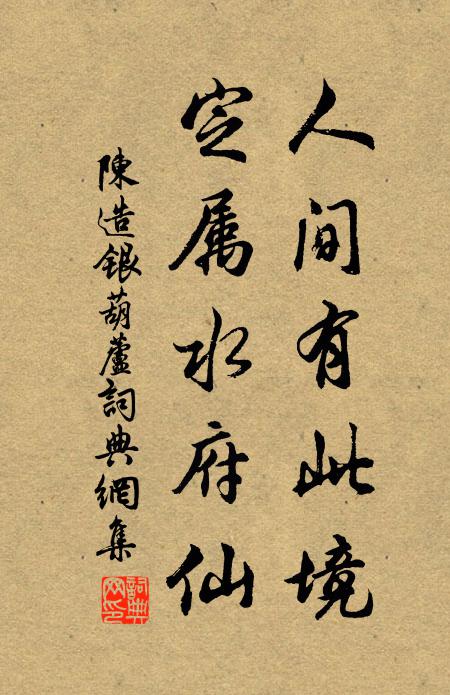 人间有此境
定属水府仙
陳造银葫蘆詞典網集
詞典
网印